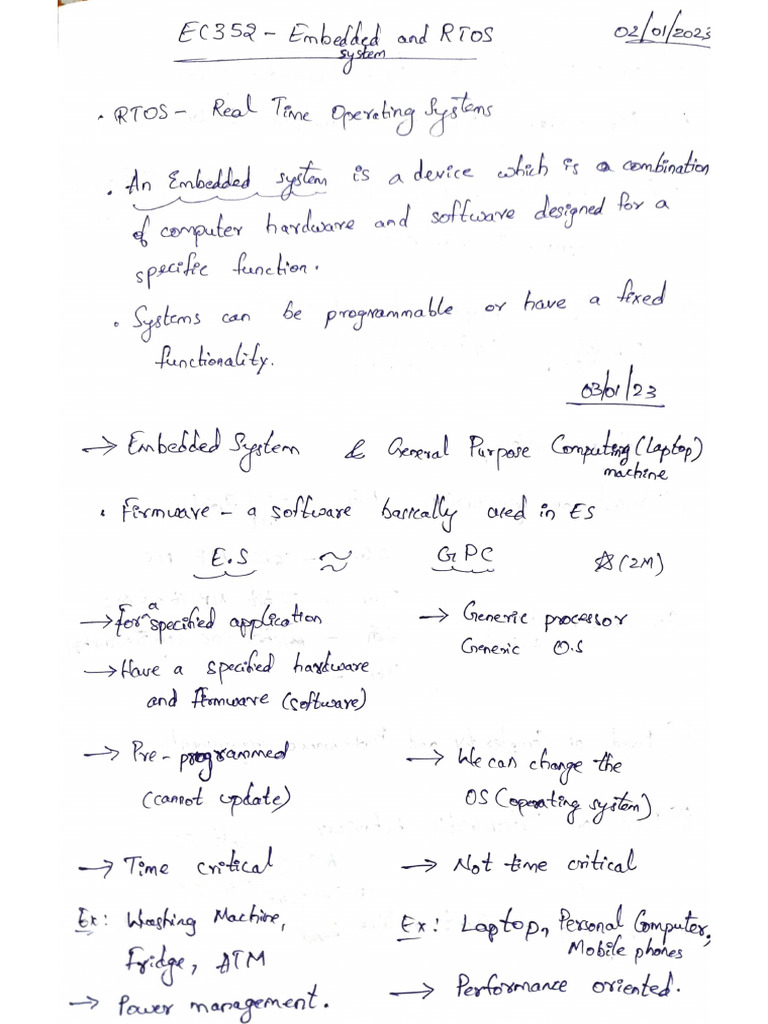 EC352 - Embedded and RTOS
system
02/01/2023
• RTOS - Real Time Operating Systems
• An Embedded system is a device which is a combination
of computer hardware and software designed for a
specific function.
• Systems can be programmable or have a fixed
functionality.
03/01/23
→ Embedded System & General Purpose Computing (laptop)
machine
• Firmware - a software basically used in ES
E.S ≈ GPC ☆(2M)
→ For a specified application
→ Generic processor
Generic O.S
→ Have a specified hardware
and firmware (software)
→ Pre-programmed
(cannot update)
→ We can change the
OS (operating system)
→ Time critical
→ Not time critical
Ex: Washing Machine,
Fridge, ATM
Ex: Laptop, Personal Computer,
Mobile phones
→ Power management.
→ Performance oriented.